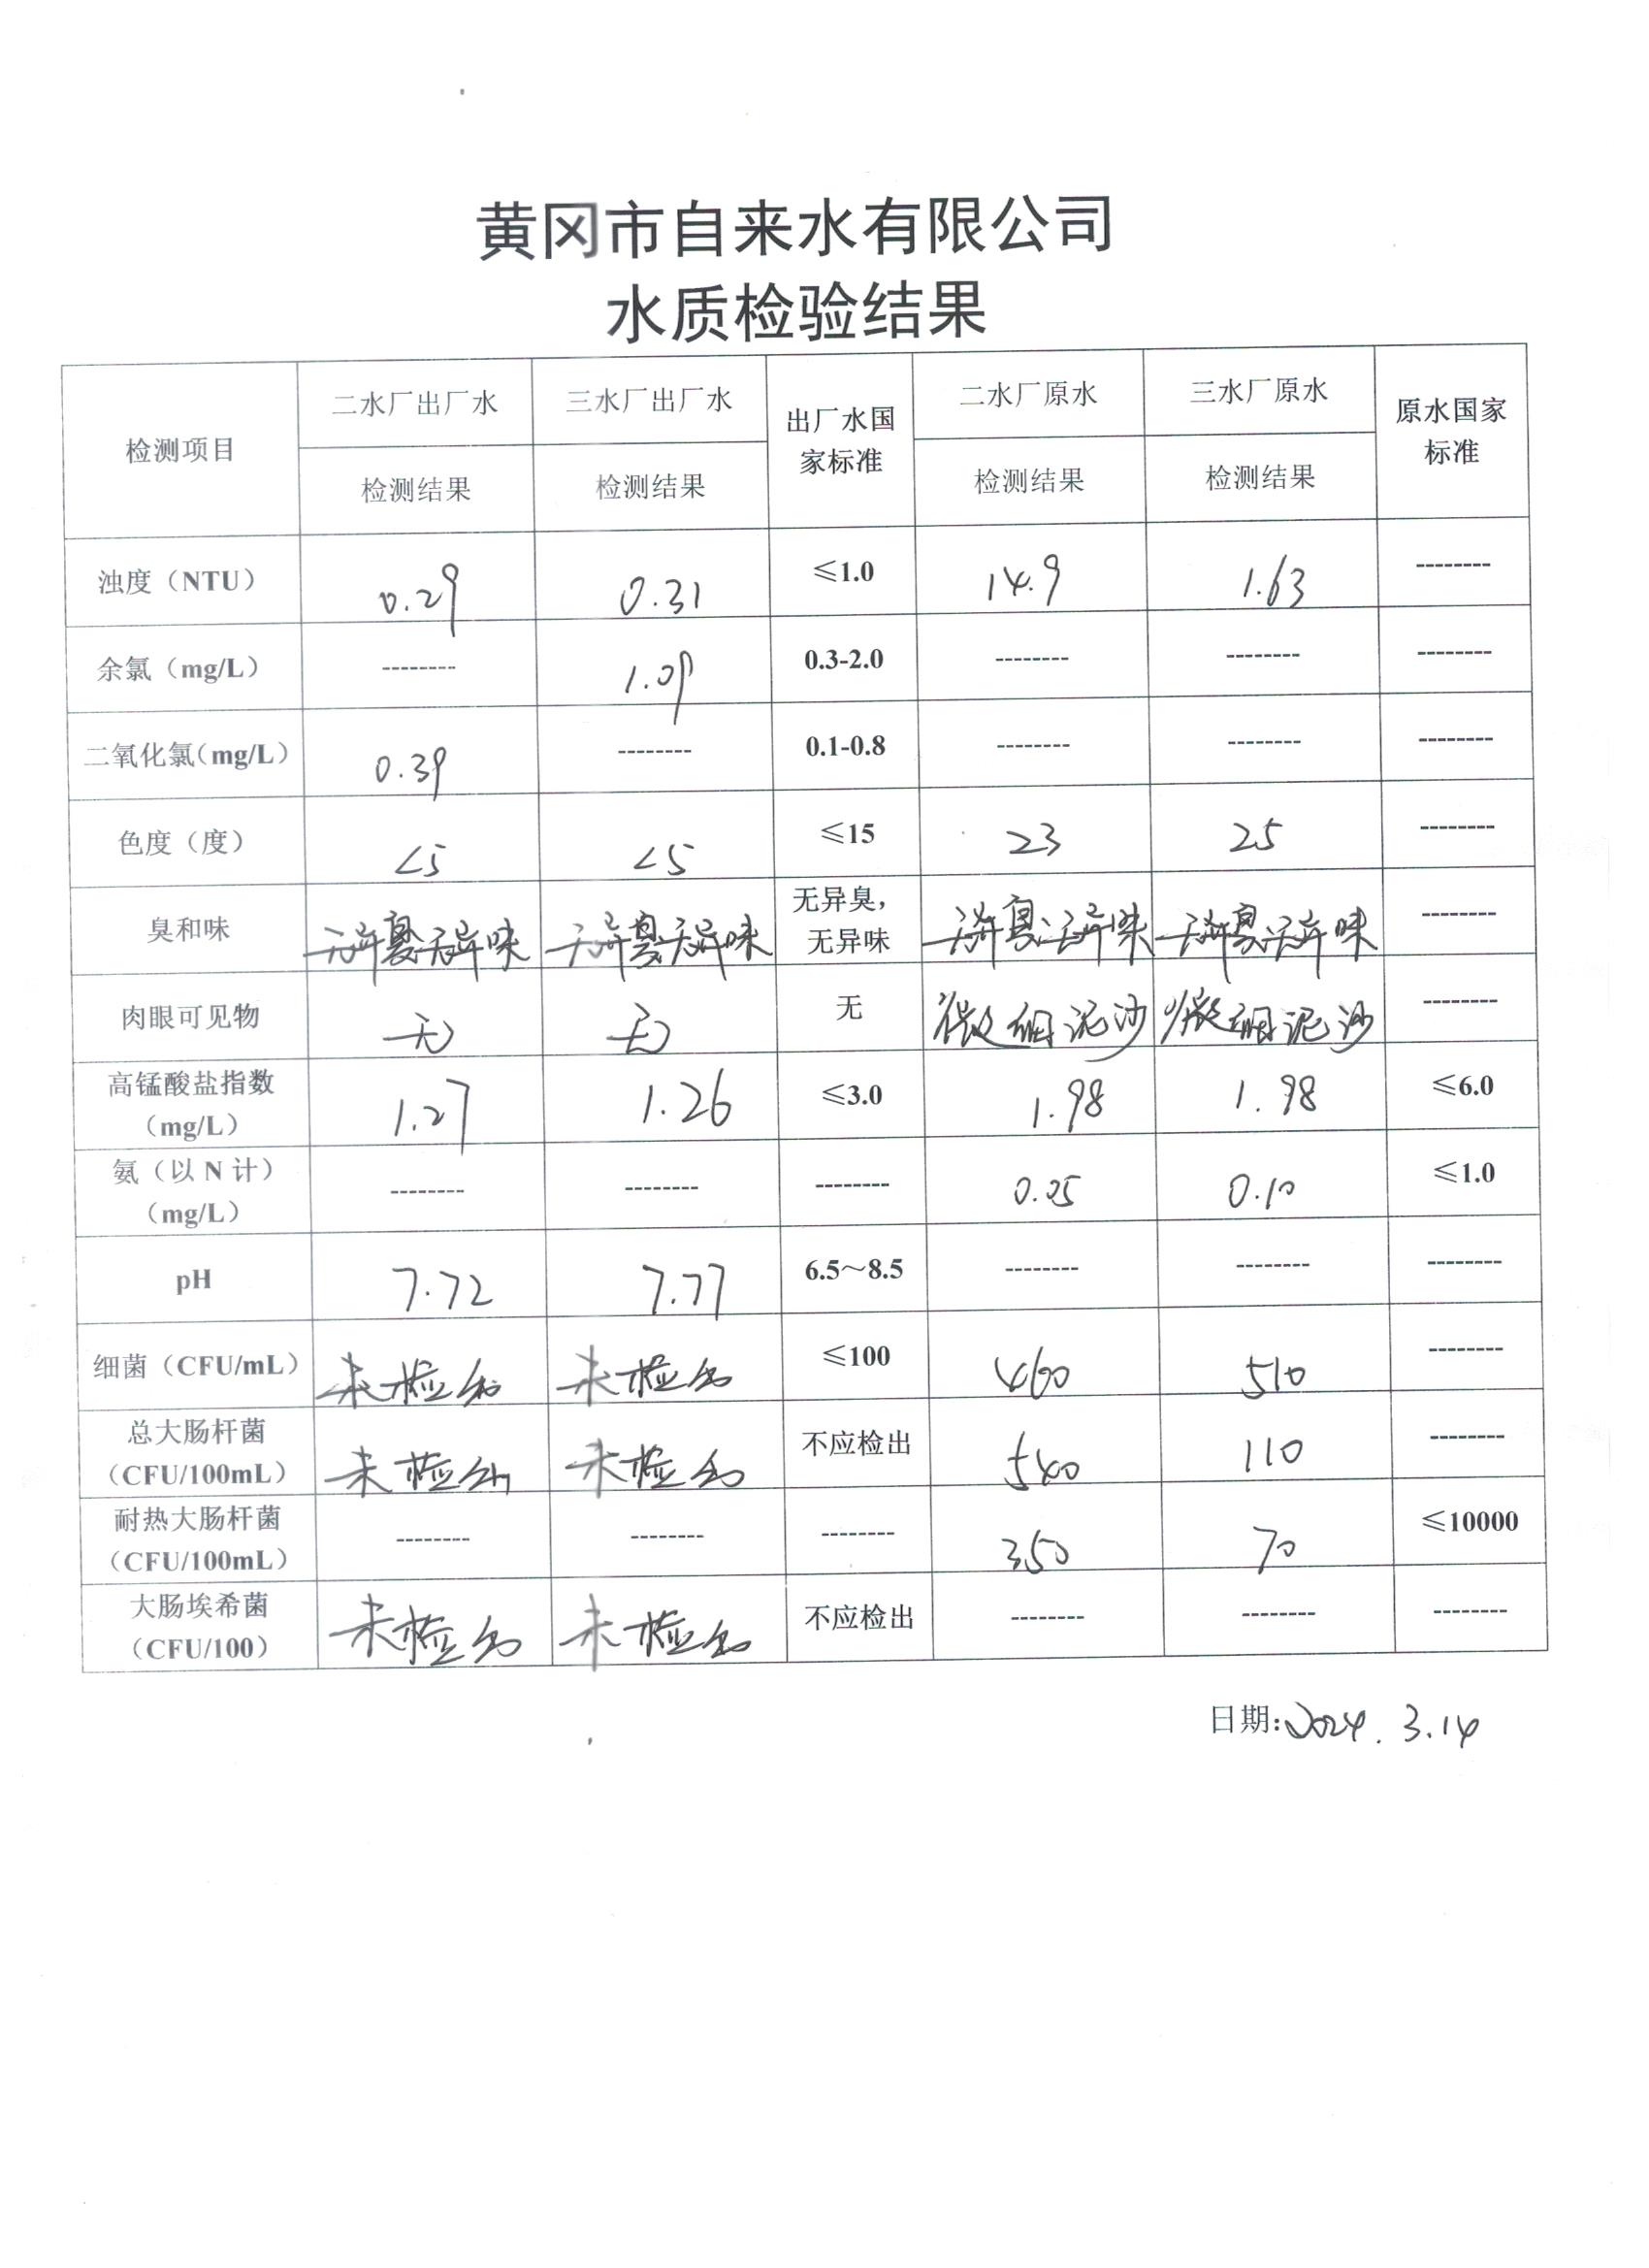 黄冈市自来水有限公司
水质检验结果
检测项目 二水厂出厂水 三水厂出厂水 出厂水国家标准 二水厂原水 三水厂原水 原水国家标准
检测结果 检测结果 检测结果 检测结果
浊度（NTU） 0.29 0.31 ≤1.0 14.9 1.63 --------
余氯（mg/L） -------- 1.09 0.3-2.0 -------- -------- --------
二氧化氯（mg/L） 0.39 -------- 0.1-0.8 -------- -------- --------
色度（度） <5 <5 ≤15 23 25 --------
臭和味 无异臭无异味 无异臭无异味 无异臭，无异味 无异臭无异味 无异臭无异味 --------
肉眼可见物 无 无 无 微细泥沙 微细泥沙 --------
高锰酸盐指数（mg/L） 1.27 1.26 ≤3.0 1.98 1.98 ≤6.0
氨（以 N 计）（mg/L） -------- -------- -------- 0.05 0.10 ≤1.0
pH 7.72 7.77 6.5～8.5 -------- -------- --------
细菌（CFU/mL） 未检出 未检出 ≤100 460 510 --------
总大肠杆菌（CFU/100mL） 未检出 未检出 不应检出 540 110 --------
耐热大肠杆菌（CFU/100mL） -------- -------- -------- 350 70 ≤10000
大肠埃希菌（CFU/100） 未检出 未检出 不应检出 -------- -------- --------
日期:2024.3.14